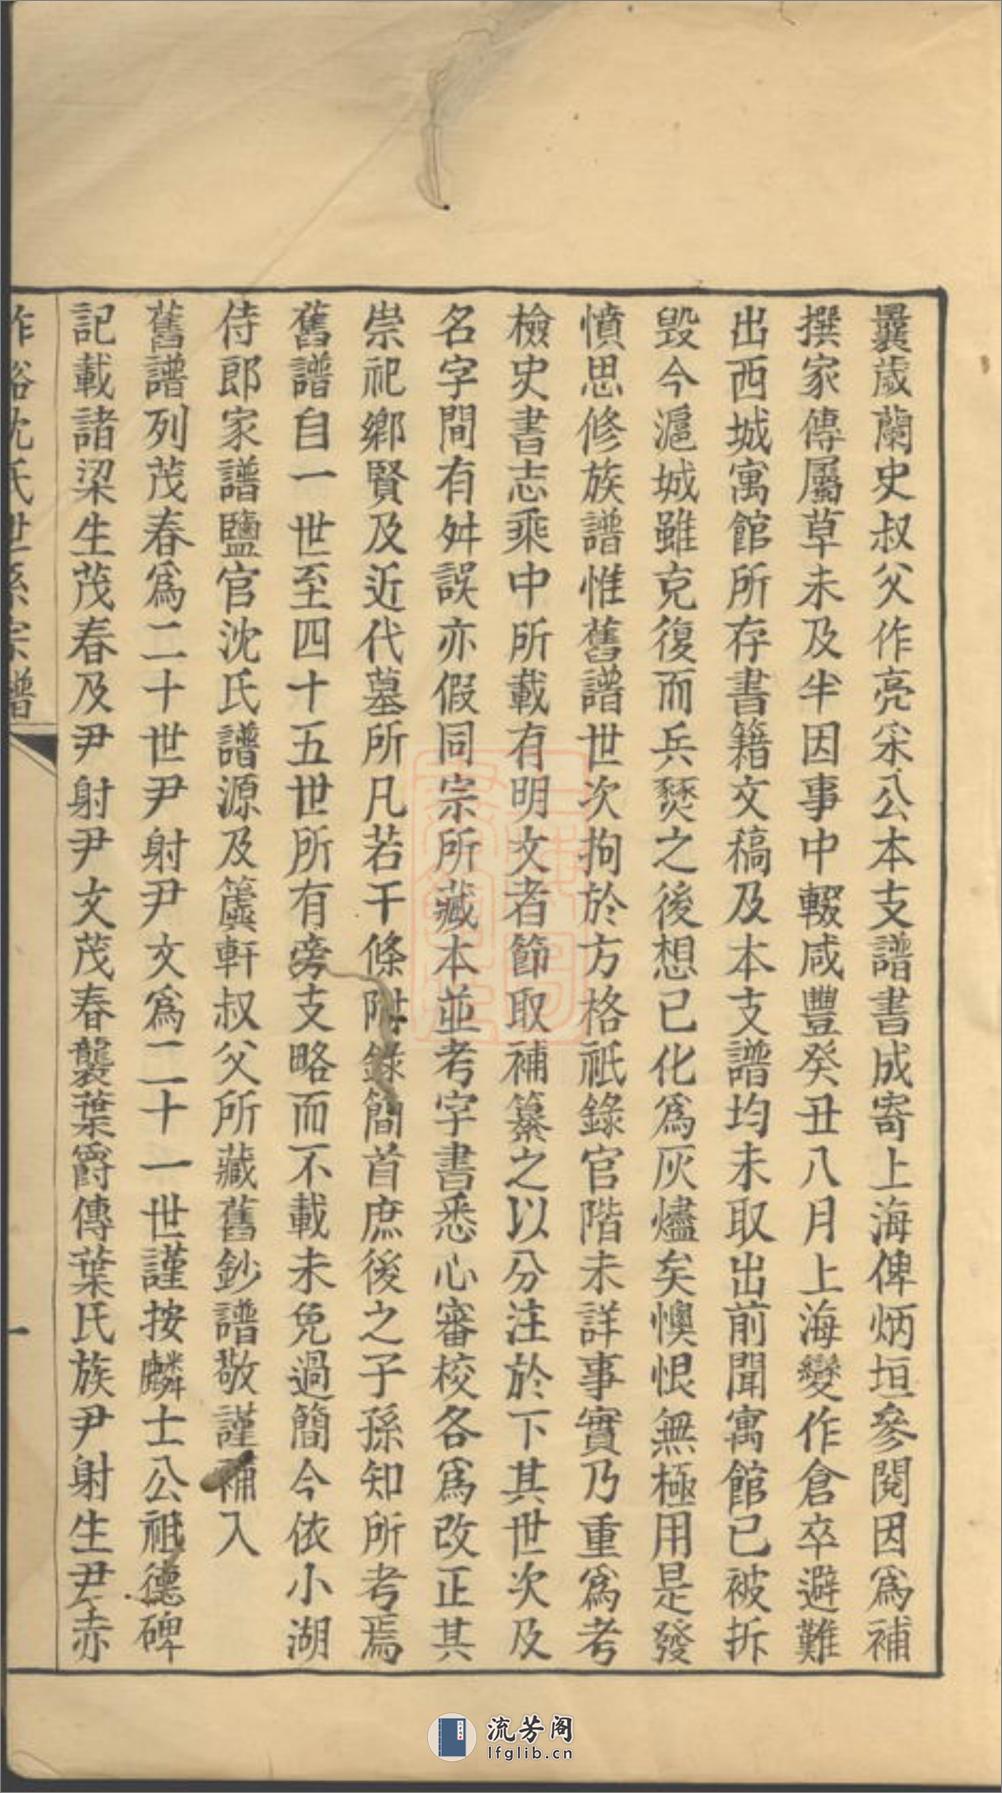 曩歲蘭史叔父作亮采公本支譜書成寄上海俾炳垣參閱因爲補
撰家傳屬草未及半因事中輟咸豐癸丑八月上海變作倉卒避難
出西城寓館所存書籍文稿及本支譜均未取出前聞寓館已被拆
毁今滬城雖克復而兵燹之後想已化爲灰燼矣懊恨無極用是發
憤思修族譜惟舊譜世次拘於方格祇錄官階未詳事實乃重爲考
檢史書志乘中所載有明文者節取補纂之以分注於下其世次及
名字間有舛誤亦假同宗所藏本並考字書悉心審校各爲改正其
崇祀鄉賢及近代墓所凡若干條附錄簡首庶後之子孫知所考焉
舊譜自一世至四十五世所有旁支略而不載未免過簡今依小湖
侍郎家譜鹽官沈氏譜源及簴軒叔父所藏舊鈔譜敬謹補入
舊譜列茂春爲二十世尹射尹文爲二十一世謹按麟士公祖德碑
記載諸梁生茂春及尹射尹文茂春襲葉爵傳葉氏族尹射生尹赤
沈氏世系宗譜
一
流芳阁
lfglib.cn